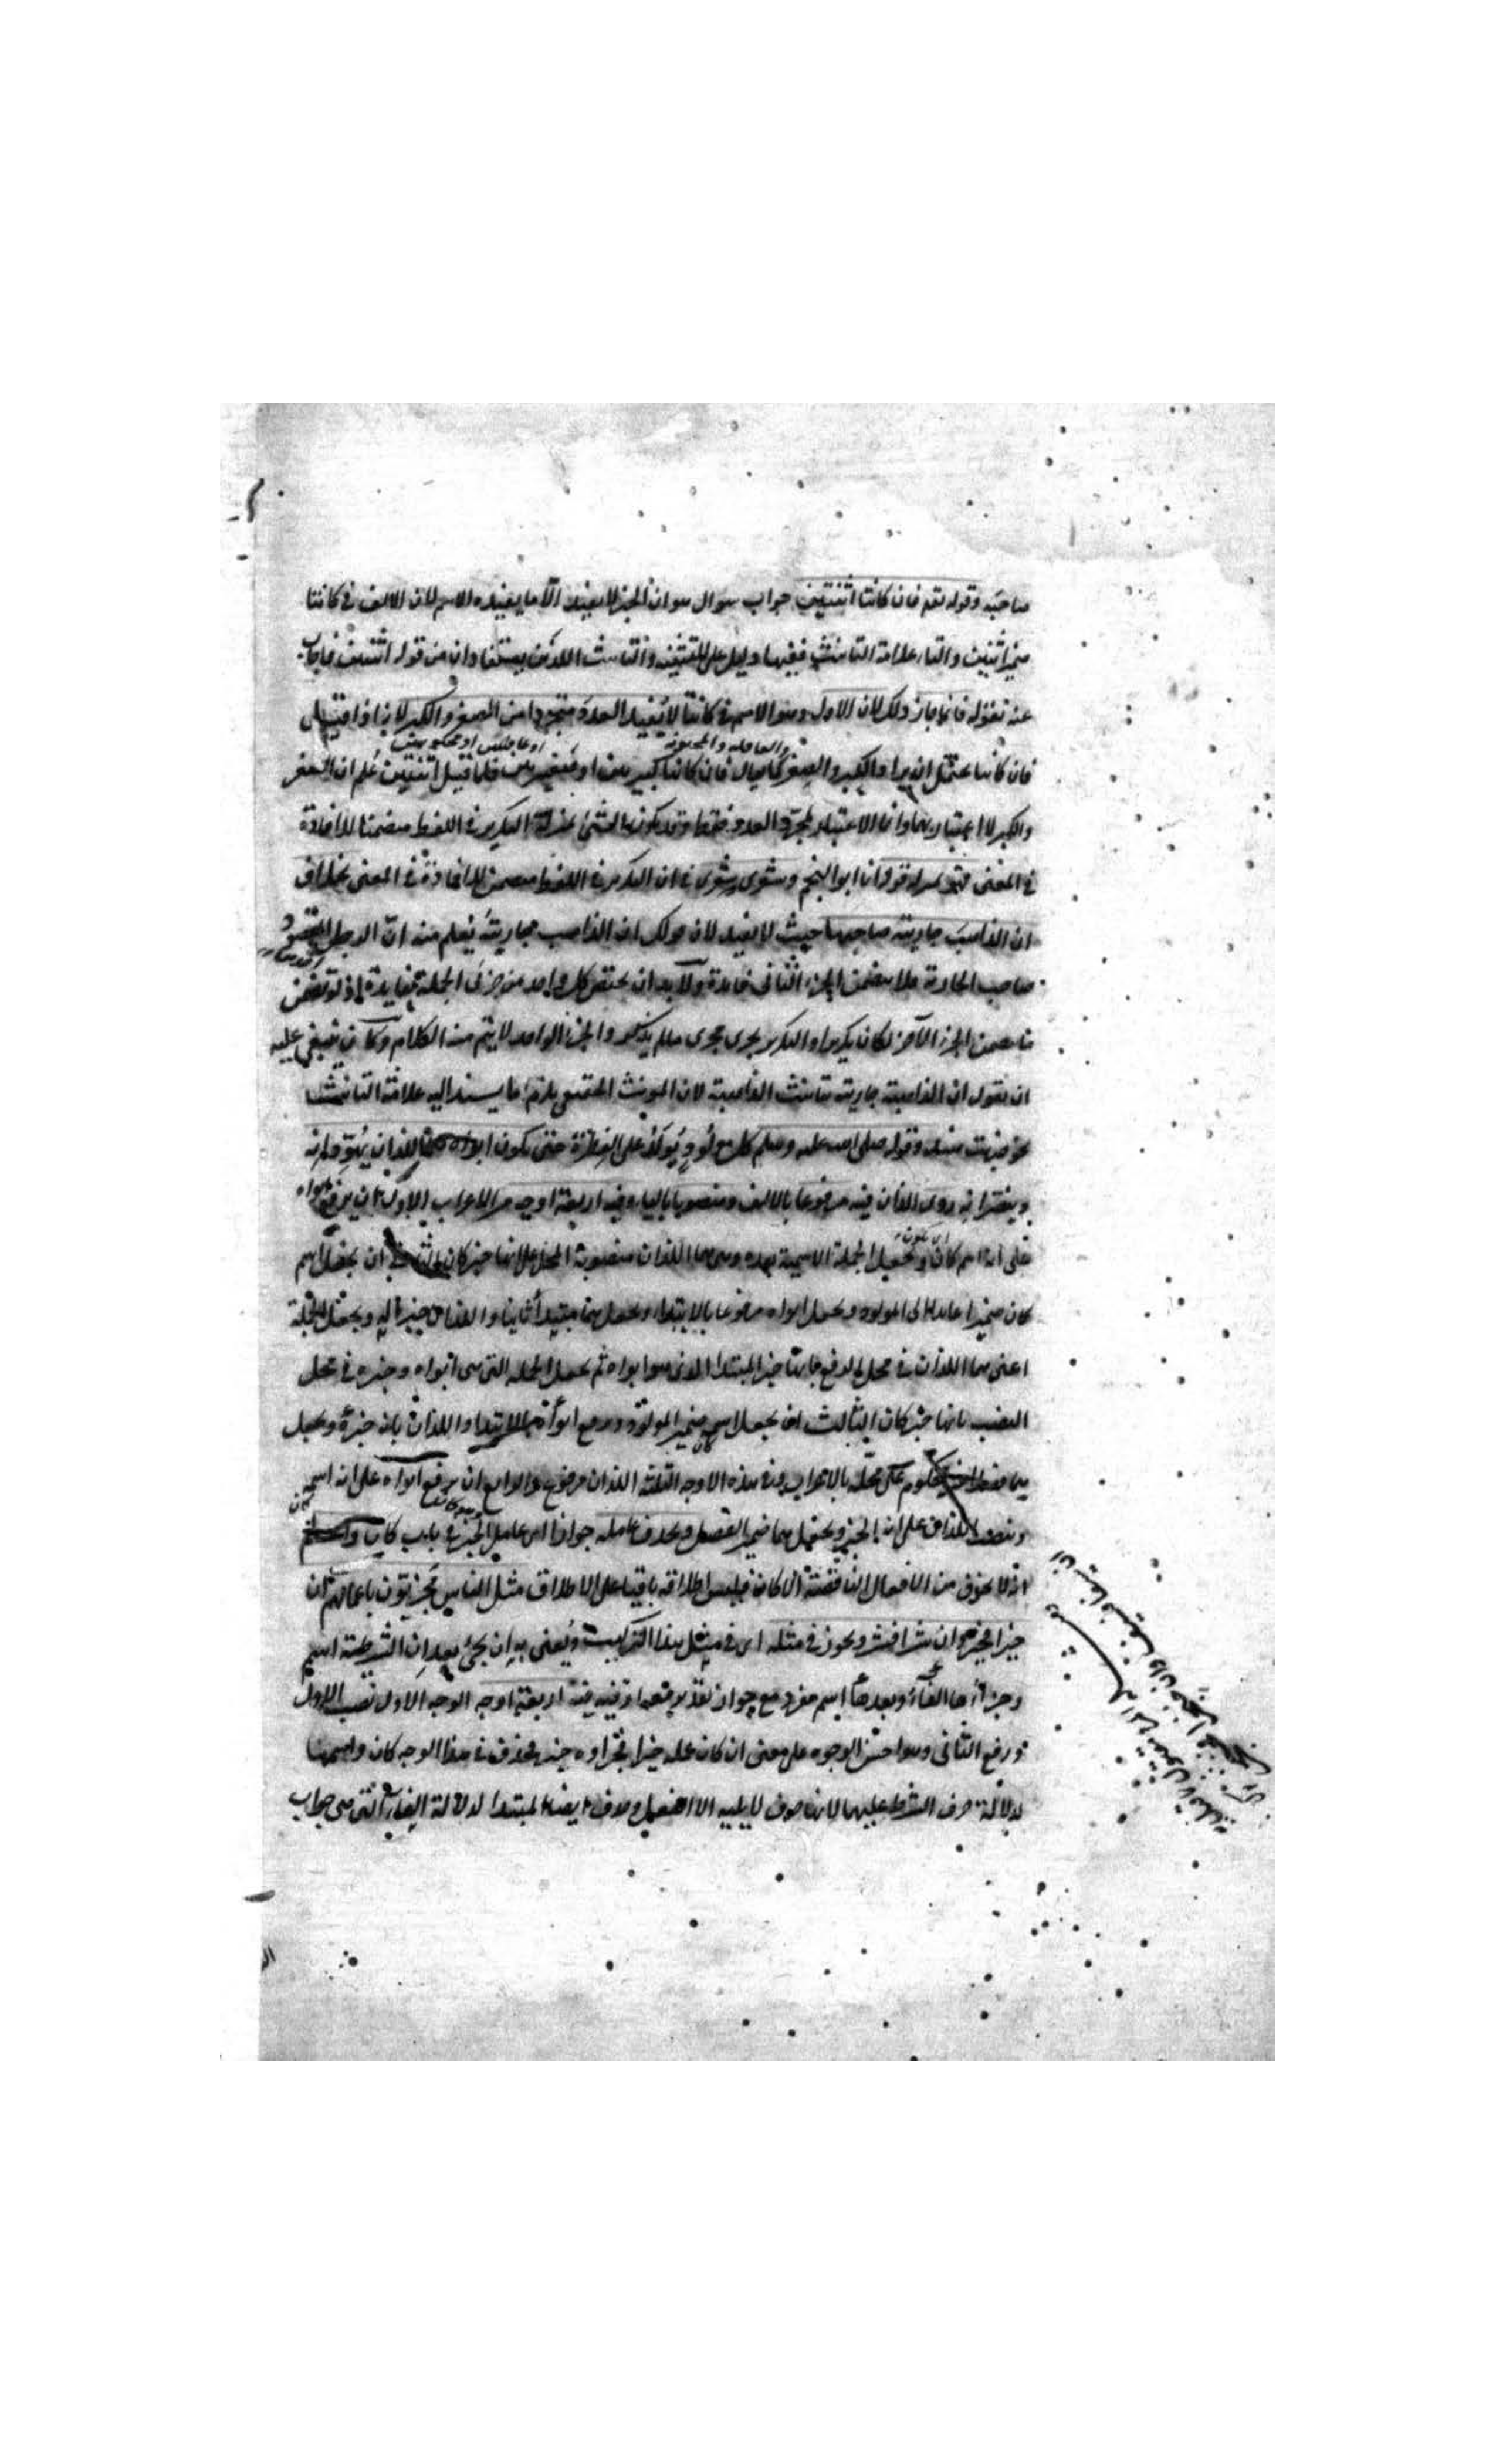 صاحبه وقوله تعم فان كانتا اثنتين جواب سوال هو ان الخبر لا يفيد الا ما يفيده الاسم لان الالف في كانتا
ضمير اثنين والتاء علامة التانيث ففيها دليل على التثنية والتانيث اللذين يستفادان من قوله اثنتين فاجاب
عنه بقوله فانما جاز ذلك لان الاول وهو الاسم في كانتا لا يفيد العدد متجردا من الصغر والكبر لانه اذا قيل
والعاقله والمجنونه او عاقلتين او مجنونتين
فان كانتا يحتمل ان يراد الكبر والصغر كما يقال فان كانتا كبيرتين او صغيرتين فلما قيل اثنتين علم ان الصغر
والكبر لا اعتبار بهما وانما الاعتبار لمجرد العدد فقط وقد يكون الشئ بمنزلة التكرير في اللفظ متضمنا للافادة
في المعنى فنحو قوله انا ابو النجم وشعرى شعرى فان التكرير في اللفظ متضمن للافادة في المعنى بخلاف
ان الذاهب جاريته صاحبها حيث لا يفيد لان قولك ان الذاهب جاريته يعلم منه ان الرجل المقصود
صاحب الجارية فلا يتضمن الجزء الثاني فايدة ولا بد ان يختص كل واحد من جزئى الجملة بفايدة اذ لو تضمن
ما يتضمن الجزء الآخر لكان تكريرا والتكرير يجرى مجرى ما لم يذكر والجزء الواحد لا يتم منه الكلام وكان ينبغي عليه
ان يقول ان الذاهبة جاريته بتانيث الذاهبة لان المونث الحقيقى يلزم ما يسند اليه علامة التانيث
نحو ضربت هند وقوله صلى الله عليه وسلم كل مولود يولد على الفطرة حتى يكون ابواه هما اللذان يهودانه
وينصرانه روى اللذان فيه مرفوعا بالالف ومنصوبا بالياء وفيه اربعة اوجه من الاعراب الاول ان يرفع ابواه
على انه اسم كان وتجعل الجملة الاسمية بعده وهى هما اللذان منصوبة المحل على انها خبر كان والثاني ان يجعل اسم
كان ضميرا عايدا الى المولود ويجعل ابواه مرفوعا بالابتداء ويجعل هما مبتدأ ثانيا واللذان خبرا له ويجعل الجملة
اعنى هما اللذان في محل الرفع بانها خبر المبتدا الذى هو ابواه ثم يجعل الجملة التى هى ابواه وخبره في محل
النصب بانها خبر كان الثالث ان يجعل اسم كان ضمير المولود ويرفع ابواه بالابتداء واللذان بانه خبره ويجعل
هما فصلا محكوم على محله بالاعراب وفى هذه الاوجه الثلثة اللذان مرفوع والرابع ان يرفع ابواه على انه اسم كان
وينصب اللذان على انه الخبر ويحتمل هما ضمير الفصل ويحذف عامله جوازا اى عامل الخبر في باب كان
اذ لا يحذف من الافعال الناقصة الا كان فليس اطلاقه باقيا على الاطلاق مثل الناس مجزيون باعمالهم ان
خيرا فخير وان شرا فشر ويجوز في مثله اى في مثل هذا التركيب ويعنى به ان يجئ بعد ان الشرطية اسم
وجزاءها الفاء وبعدها اسم مفرد مع جواز تقدير معه او فيه اربعة اوجه الوجه الاول نصب الاول
ورفع الثانى وهو احسن الوجوه على معنى ان كان عمله خيرا فجزاوه خير يحذف في هذا الوجه كان واسمها
لدلالة حرف الشرط عليهما لانه حرف لا يليه الا الفعل وحذف ايضا المبتدا لدلالة الفاء التى هى جواب